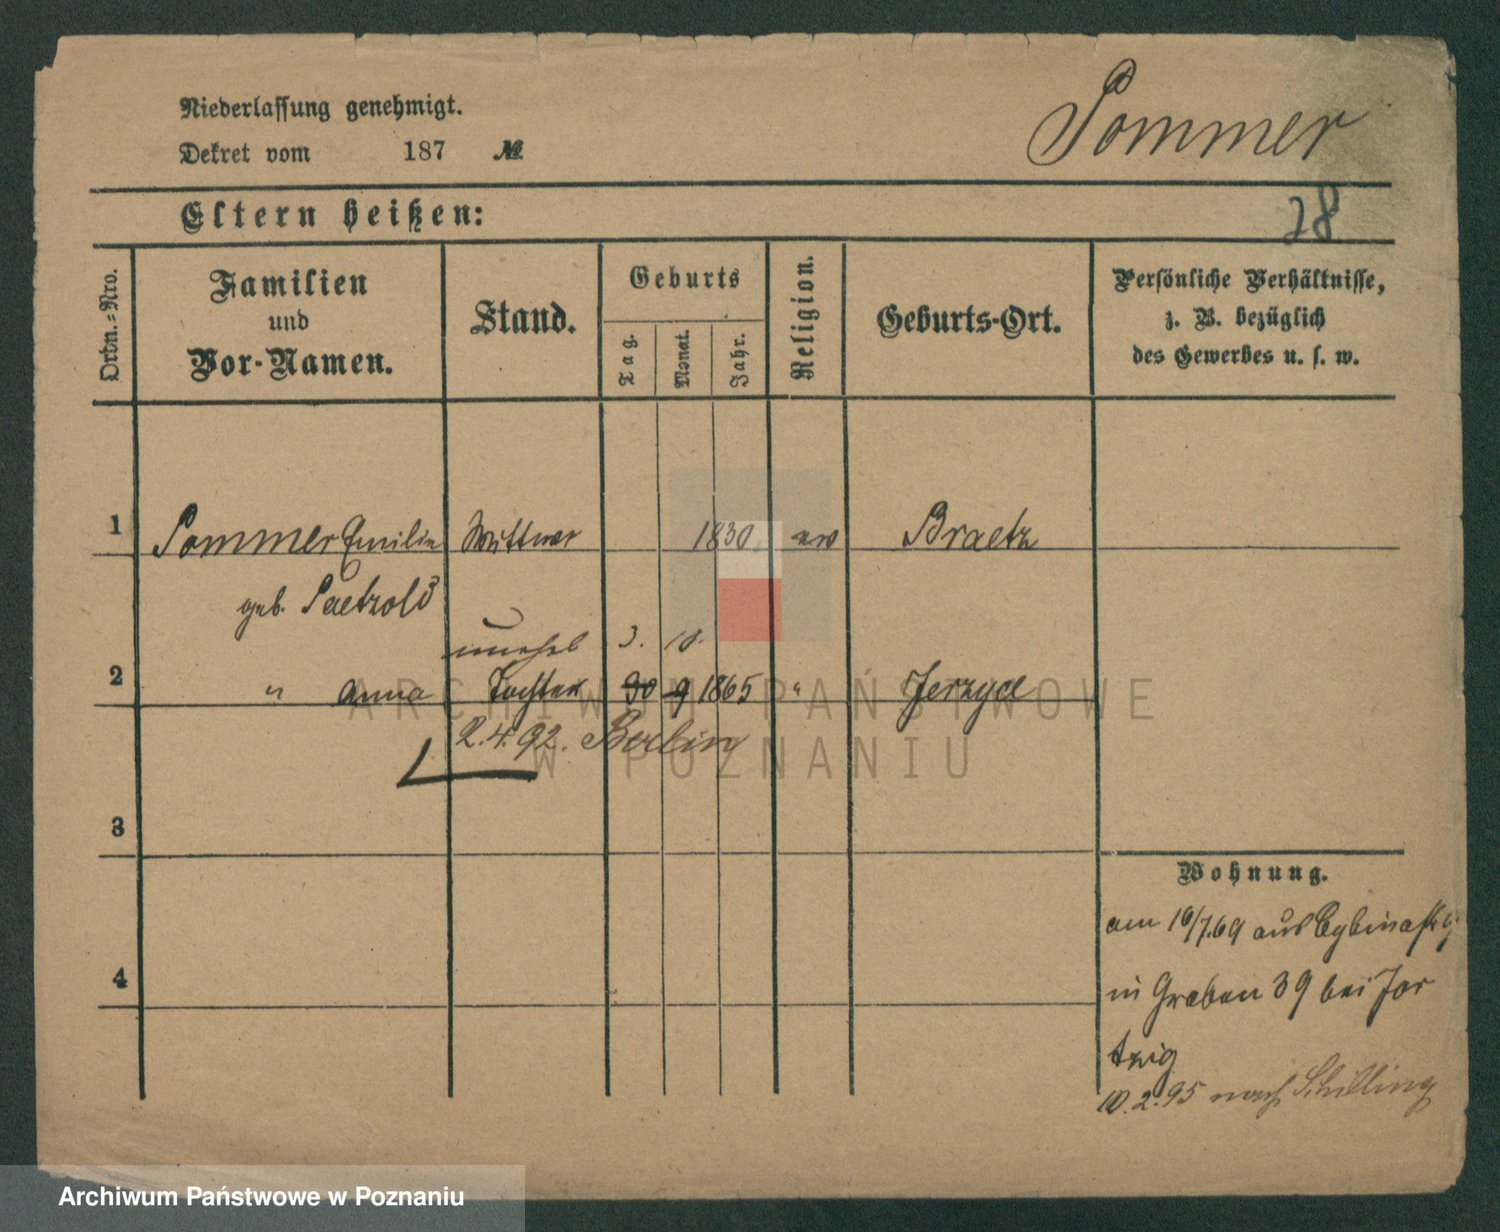 Niederlassung genehmigt.
Dekret vom 187 №
Sommer
Eltern heißen:
28
Ordn.-Nro.
Familien
und
Vor-Namen.
Stand.
Geburts
Tag.
Monat.
Jahr.
Religion.
Geburts-Ort.
Persönliche Verhältnisse,
z. B. bezüglich
des Gewerbes u. s. w.
1 Sommer Emilie Wittwe 1830 ev Braetz
geb. Paetzold
unehel 3. 10.
2 " Anna Tochter 30 9 1865 " Jerzyce
2.4.92. Berlin
3
Wohnung.
am 16/7.69 aus
4
in Graben 39 bei Jar
tzig
10.2.95 nach Schilling
ARCHIWUM PAŃSTWOWE
W POZNANIU
Archiwum Państwowe w Poznaniu